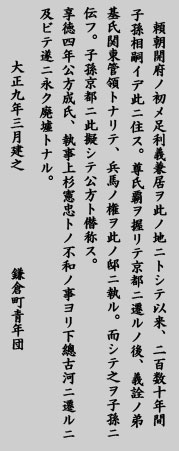 頼朝開府ノ初メ足利義兼居ヲ此ノ地ニトシテ以来、二百数十年間
子孫相嗣イデ此ニ住ス。尊氏覇ヲ握リテ京都ニ還ルノ後、義詮ノ弟
基氏関東管領トナリテ、兵馬ノ権ヲ此ノ邸ニ執ル。而シテ之ヲ子孫ニ
伝フ。子孫京都ニ此擬シテ公方ト僭称ス。
享徳四年公方成氏、執事上杉憲忠トノ不和ノ事ヨリ下總古河ニ還ルニ
及ビテ遂ニ永ク廃墟トナル。
大正九年三月建之
鎌倉町青年団